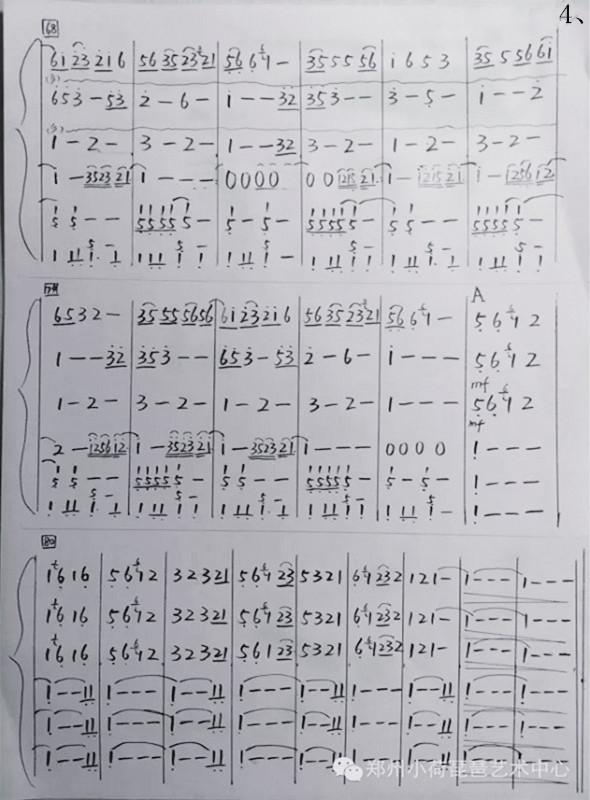 4、
68
6i 23 2i 6 | 56 35 23 21 | 56 6 1 - | 35 5 5 56 | i 6 5 3 | 35 5 56 6i
653 - 53 | 2 - 6 - | i - - 32 | 353 - - | 3 - 5 - | i - - 2
1 - 2 - | 3 - 2 - | 1 - - 32 | 3 - 2 - | 1 - 2 - | 3 - 2 -
i - 3523 21 | 1 - - - | 0 0 0 0 | 0 0 1215 21 | i - 1215 21 | i - 1256 12
5 5 - - | 5555 5 - | 5 - 5 - | 5555 5 - | 5 5 - - | 5555 5 -
6532 - | 35 55 56 56 | 6i 23 2i 6 | 56 35 23 21 | 56 6 1 - | A 5 6 1 2
1 - - 32 | 353 - - | 653 - 53 | 2 - 6 - | i - - - | 5 6 1 2
1 - 2 - | 3 - 2 - | 1 - 2 - | 3 - 2 - | 1 - - - | mf 5 6 1 2
2 - 1256 12 | 1 - 3523 21 | 1 - 3523 21 | 1 - - - | 0 0 0 0 | mf 1 - - -
5 5 - - | 5555 5 - | 5 5 - - | 5555 5 - | 5 5 - - | 1 - - -
80
1 6 1 6 | 5 6 1 2 | 3 2 3 21 | 5 6 1 23 | 5 3 2 1 | 6 1 23 2 | 1 2 1 - | 1 - - - | 1 - - -
1 6 1 6 | 5 6 1 2 | 3 2 3 21 | 5 6 1 23 | 5 3 2 1 | 6 1 23 2 | 1 2 1 - | 1 - - - | 1 - - -
1 6 1 6 | 5 6 1 2 | 3 2 3 21 | 5 6 1 23 | 5 3 2 1 | 6 1 23 2 | 1 2 1 - | 1 - - - | 1 - - -
1 - - 11 | 1 - - - | 1 - - 11 | 1 - - - | 1 - - 11 | 1 - - - | 1 - - - | 1 - - - | 1 - - -
1 - - 11 | 1 - - - | 1 - - 11 | 1 - - - | 1 - - 11 | 1 - - - | 1 - - - | 1 - - - | 1 - - -
1 - - 11 | 1 - - - | 1 - - 11 | 1 - - - | 1 - - 11 | 1 - - - | 1 - - - | 1 - - - | 1 - - -
郑州小荷琵琶艺术中心